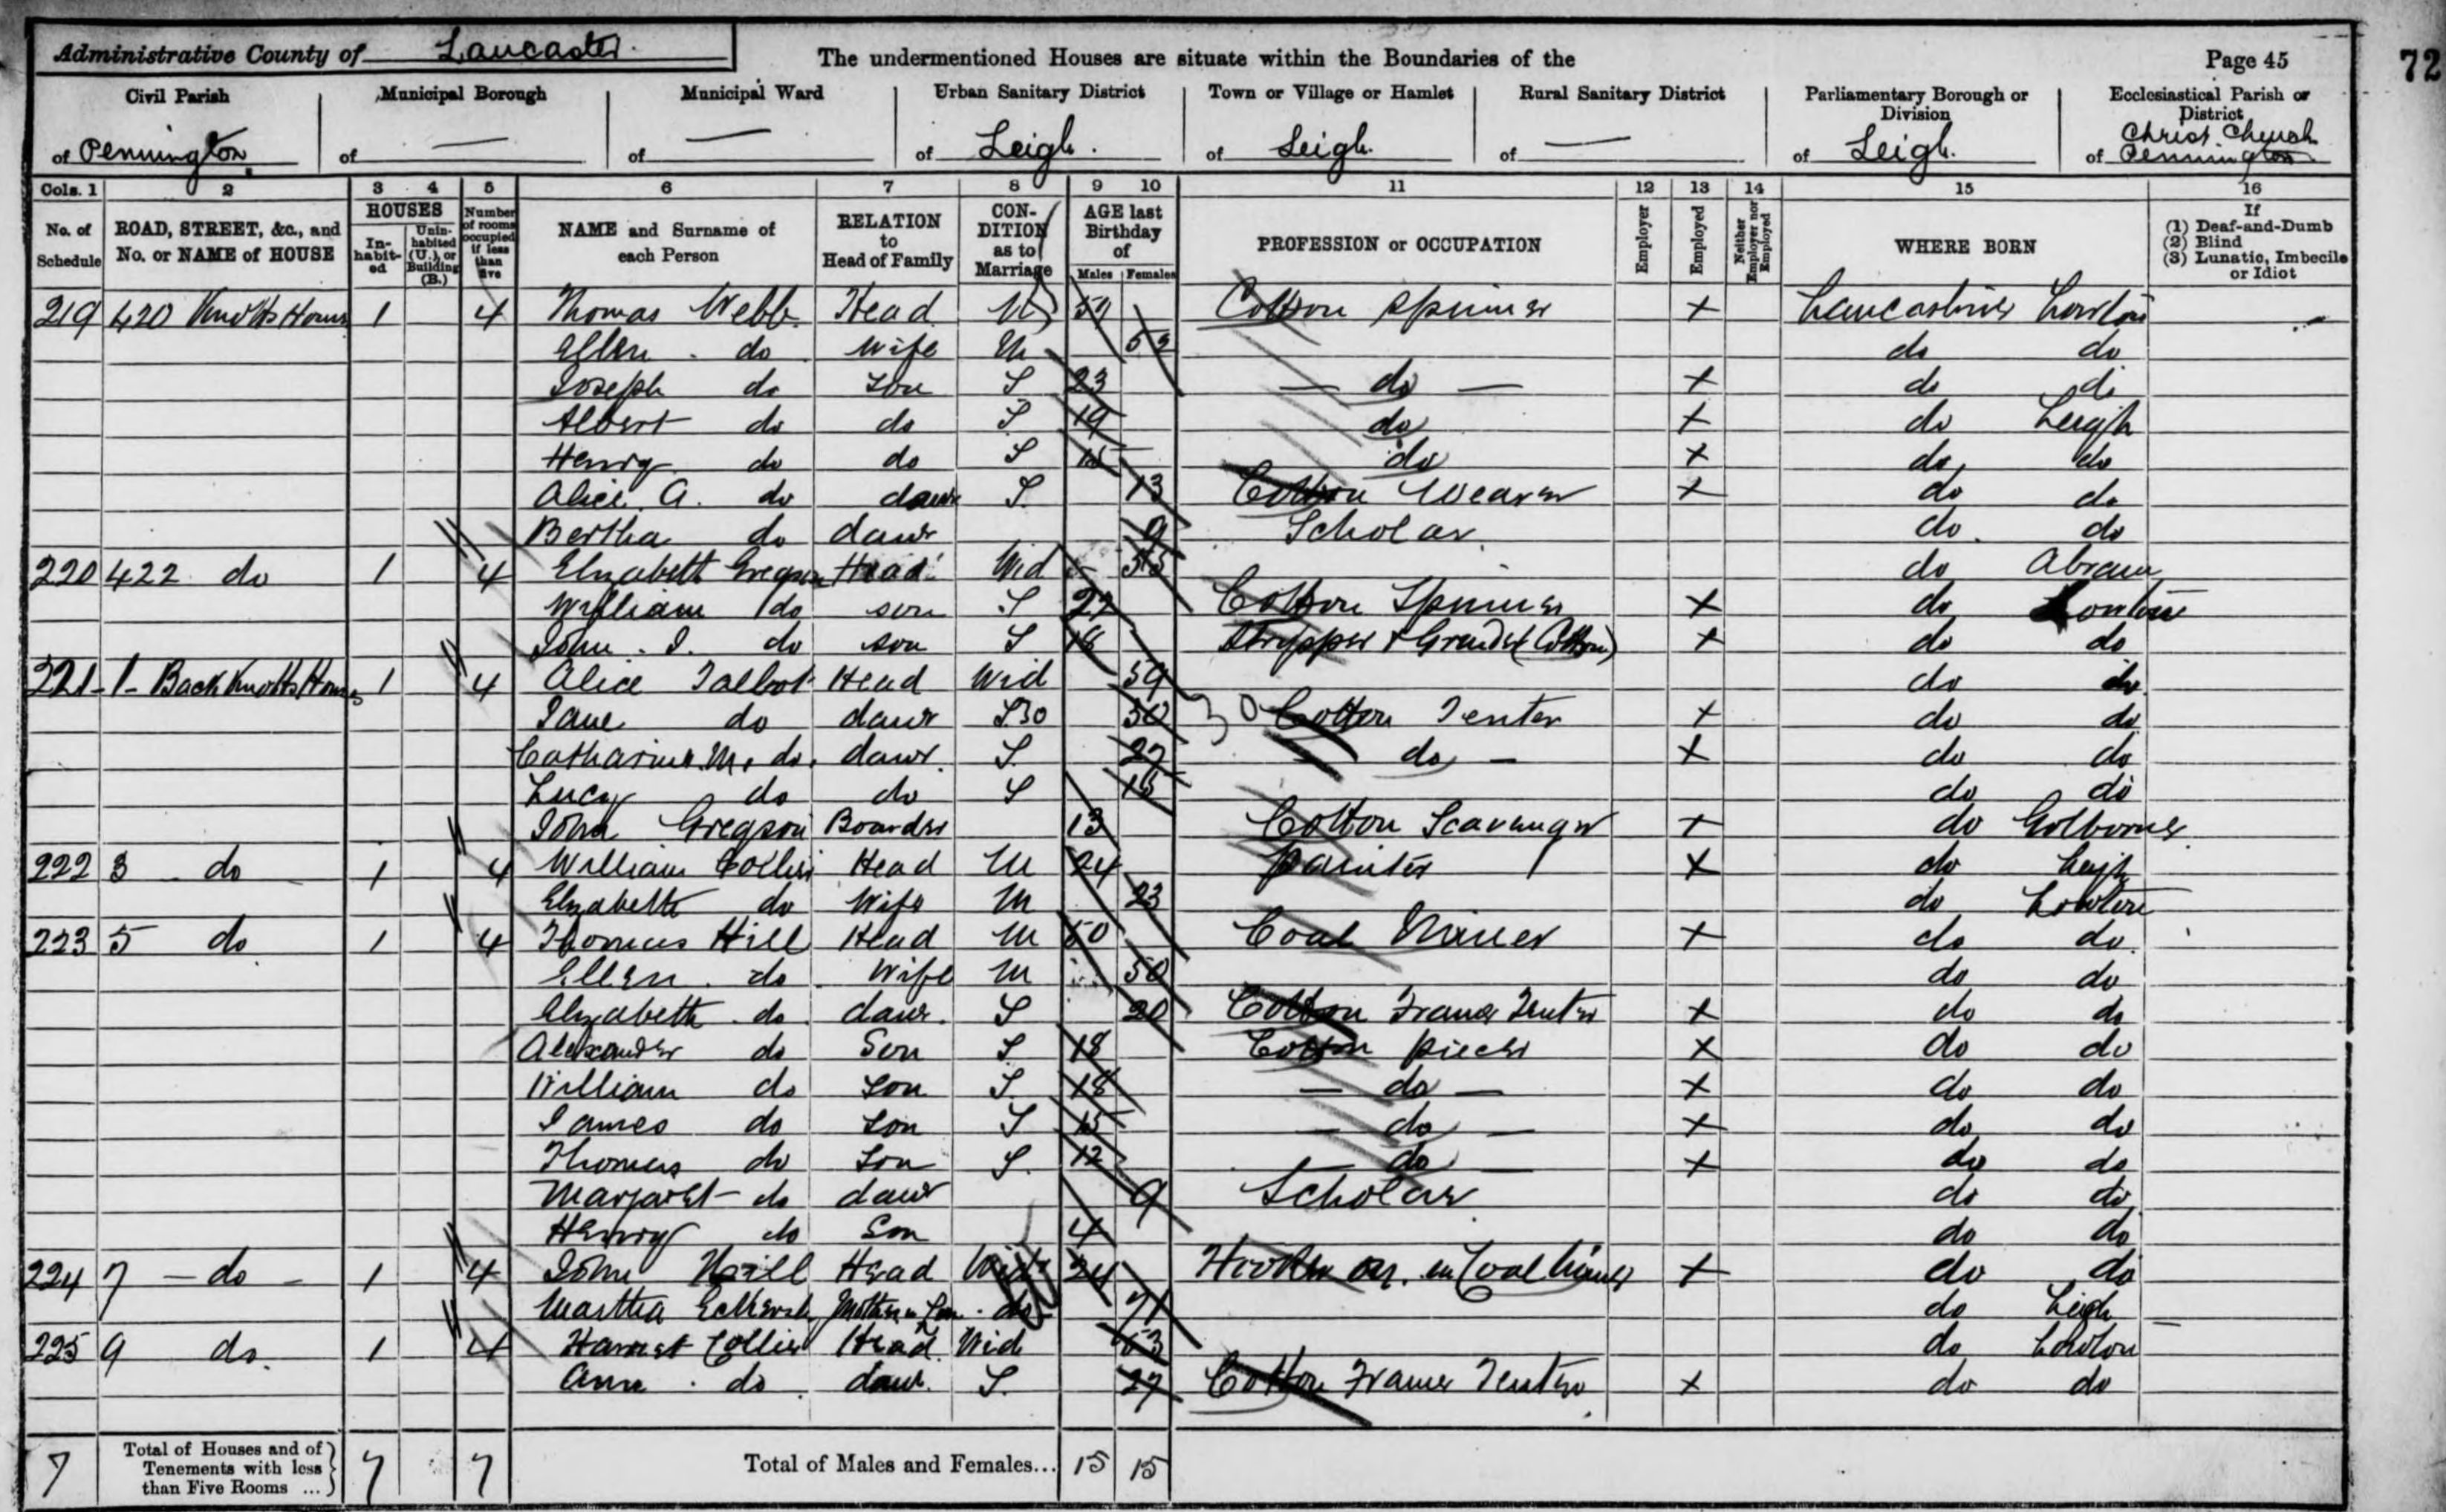 Administrative County of Lancaster.
The undermentioned Houses are situate within the Boundaries of the
Page 45
72
Civil Parish of Pennington
Municipal Borough of —
Municipal Ward of —
Urban Sanitary District of Leigh.
Town or Village or Hamlet of Leigh.
Rural Sanitary District of —
Parliamentary Borough or Division of Leigh.
Ecclesiastical Parish or District of Christ Church Pennington
Cols. 1 2 3 4 5 6 7 8 9 10 11 12 13 14 15 16
No. of Schedule
ROAD, STREET, &c., and No. or NAME of HOUSE
HOUSES
In-habit-ed
Unin-habited (U.), or Building (B.)
Number of rooms occupied if less than five
NAME and Surname of each Person
RELATION to Head of Family
CON-DITION as to Marriage
AGE last Birthday of
Males Females
PROFESSION or OCCUPATION
Employer
Employed
Neither Employer nor Employed
WHERE BORN
If
(1) Deaf-and-Dumb
(2) Blind
(3) Lunatic, Imbecile or Idiot
219 420 Knotts Houses 1 4 Thomas Webb Head M 57 Cotton Spinner X Lancashire Lowton
Ellen do Wife M 52 do do
Joseph do Son S 23 — do — X do do
Albert do do S 19 do X do Leigh
Henry do do S 15 do X do do
Alice A. do daur S. 13 Cotton Weaver X do do
Bertha do daur 9 Scholar do do
220 422 do 1 4 Elizabeth Gregson Head Wid 55 do Abram
William do son S 27 Cotton Spinner X do Lowton
John . I. do son S 18 Stripper & Grinder (Cotton) X do do
221 1 Back Knotts Houses 1 4 Alice Talbot Head Wid 59 do do
Jane do daur S 30 30 Cotton Tenter X do do
Catharine M. do. daur. S. 27 do — X do do
Lucy do do S 15 do do
John Gregson Boarder 13 Cotton Scavenger X do Golborne
222 3 do 1 4 William Collier Head M 24 Painter X do Leigh
Elizabeth do Wife M 23 do Lowton
223 5 do 1 4 Thomas Hill Head M 50 Coal Miner X do do
Ellen do Wife M 50 do do
Elizabeth do daur. S 20 Cotton Frame Tenter X do do
Alexander do Son S 18 Cotton piecer X do do
William do Son S. 18 — do — X do do
James do Son S 15 — do — X do do
Thomas do Son S. 12 — do — X do do
Margaret do daur 9 Scholar do do
Henry do Son 4 do do
224 7 — do — 1 4 John Head Wid 24 in Coal mine X do do
Martha Mother in Law do 71 do Leigh
225 9 do. 1 4 Harriet Collier Head Wid 53 do Lowton
Ann do daur. S. 27 Cotton Frame Tenter X do do
7 Total of Houses and of Tenements with less than Five Rooms ... 7 7 Total of Males and Females... 15 15